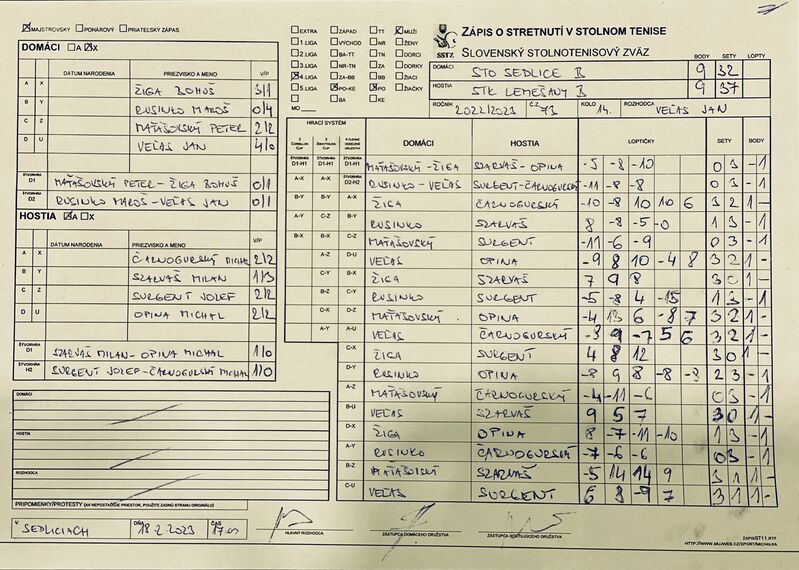 MAJSTROVSKÝ POHÁROVÝ PRIATEĽSKÝ ZÁPAS
DOMÁCI A X
DÁTUM NARODENIA PRIEZVISKO A MENO V/P
A X ŽIGA BOHUŠ 3/1
B Y RUSINKO MAROŠ 0/4
C Z MAŤAŠOVSKÝ PETER 2/2
D U VEĽAS JAN 4/0
ŠTVORHRA D1 MAŤAŠOVSKÝ PETER-ŽIGA BOHUŠ 0/1
ŠTVORHRA D2 RUSINKO MAROŠ-VEĽAS JAN 0/1
HOSTIA A X
DÁTUM NARODENIA PRIEZVISKO A MENO V/P
A X ČARNOGURSKÝ MICHAL 2/2
B Y SZARVAŠ MILAN 1/3
C Z SURGENT JOZEF 2/2
D U OPINA MICHAL 2/2
ŠTVORHRA SZARVAŠ MILAN-OPINA MICHAL 1/0
ŠTVORHRA H2 SURGENT JOZEF-ČARNOGURSKÝ MICHAL 1/0
DOMÁCI
HOSTIA
ROZHODCA
PRIPOMIENKY/PROTESTY (AK NEPOSTAČUJE PRIESTOR, POUŽITE ZADNÚ STRANU ORIGINÁLU)
V SEDLICIACH DŇA 18.2.2023 ČAS 17:00
HLAVNÝ ROZHODCA
ZÁSTUPCA DOMÁCEHO DRUŽSTVA
ZÁSTUPCA HOSŤUJÚCEHO DRUŽSTVA
EXTRA ZÁPAD TT MUŽI
1.LIGA VÝCHOD NR ŽENY
2.LIGA BA-TT TN DORCI
3.LIGA NR-TN ZA DORKY
4.LIGA ZA-BB BB ŽIACI
5.LIGA PO-KE PO ŽIAČKY
BA KE
MO
SSTZ
ZÁPIS O STRETNUTÍ V STOLNOM TENISE
SLOVENSKÝ STOLNOTENISOVÝ ZVÄZ
BODY SETY LOPTY
DOMÁCI STO SEDLICE B 9 32
HOSTIA STK LEMEŠANY B 9 37
ROČNÍK 2022/2023 Č.Z. 73 KOLO 14. ROZHODCA VEĽAS JAN
HRACÍ SYSTÉM
DOMÁCI HOSTIA LOPTIČKY SETY BODY
D1-H1 D1-H1 D1-H1 MAŤAŠOVSKÝ-ŽIGA SZARVAŠ-OPINA -5 -8 -10 0 3 -1
A-X A-X D2-H2 RUSINKO-VEĽAS SURGENT-ČARNOGURSKÝ -11 -8 -8 0 3 -1
B-Y B-Y A-X ŽIGA ČARNOGURSKÝ -10 -8 10 10 6 3 2 1-
A-Y C-Z B-Y RUSINKO SZARVAŠ 8 -8 -5 -0 1 3 -1
B-X B-X C-Z MAŤAŠOVSKÝ SURGENT -11 -6 -9 0 3 -1
A-Z D-U VEĽAS OPINA -9 8 10 -4 8 3 2 1-
C-Y B-X ŽIGA SZARVAŠ 7 9 8 3 0 1-
B-Z C-Y RUSINKO SURGENT -5 -8 4 -15 1 3 -1
C-X D-Z MAŤAŠOVSKÝ OPINA -4 13 6 -8 7 3 2 1-
A-Y A-U VEĽAS ČARNOGURSKÝ -3 9 -7 5 6 3 2 1-
C-X ŽIGA SURGENT 4 8 12 3 0 1-
D-Y RUSINKO OPINA -8 9 8 -8 -3 2 3 -1
A-Z MAŤAŠOVSKÝ ČARNOGURSKÝ -4 -11 -6 0 3 -1
B-U VEĽAS SZARVAŠ 9 5 7 3 0 1-
D-X ŽIGA OPINA 8 -7 -11 -10 1 3 -1
A-Y RUSINKO ČARNOGURSKÝ -7 -6 -6 0 3 -1
B-Z MAŤAŠOVSKÝ SZARVAŠ -5 14 14 9 3 1 1-
C-U VEĽAS SURGENT 6 8 -9 7 3 1 1-
ZÁPISST11.RTF
HTTP://WWW.MUJWEB.CZ/SPORT/MICHALKA